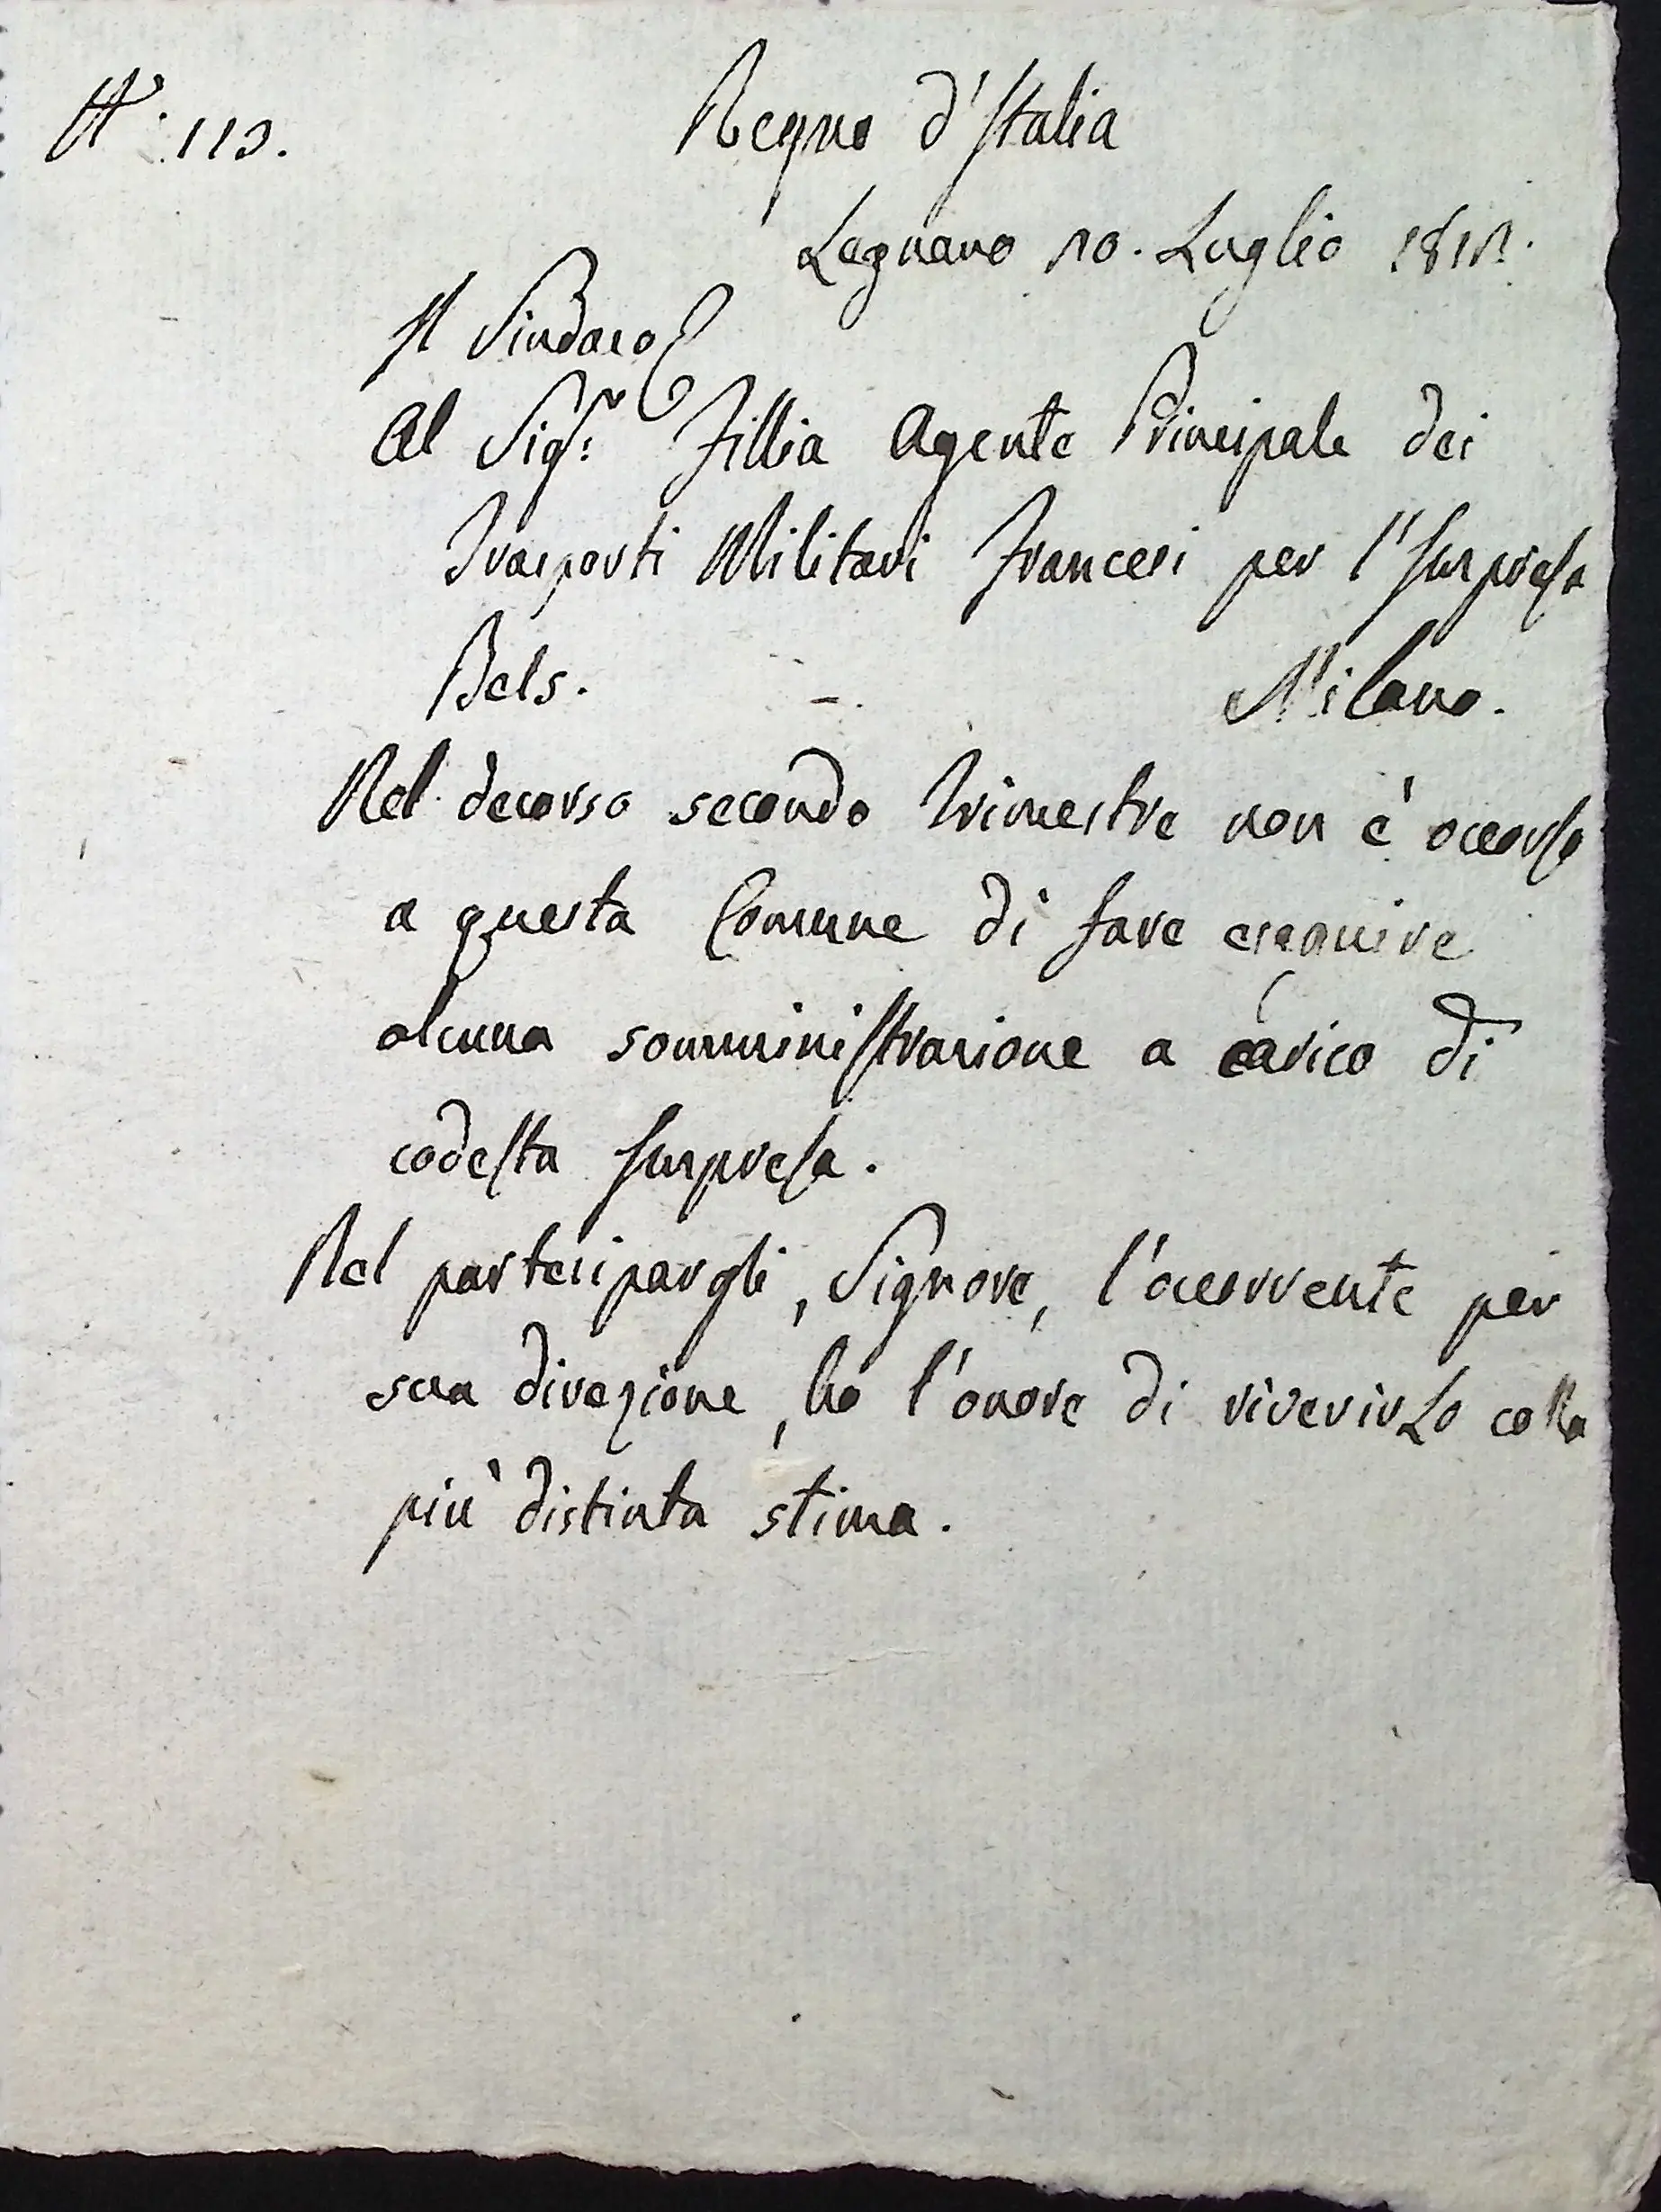 N.° 113. Regno d'Italia
Legnano 10. Luglio 1811.
Il Sindaco
Al Sig.r Fillia Agente Principale dei
Trasporti Militari Francesi per l'Impresa
Bels. Milano.
Nel decorso secondo Trimestre non è occorso
a questa Comune di fare eseguire
alcuna somministrazione a carico di
codesta Impresa.
Nel partecipargli, Signore, l'occorrente per
sua direzione, ho l'onore di riverirLo colla
più distinta stima.